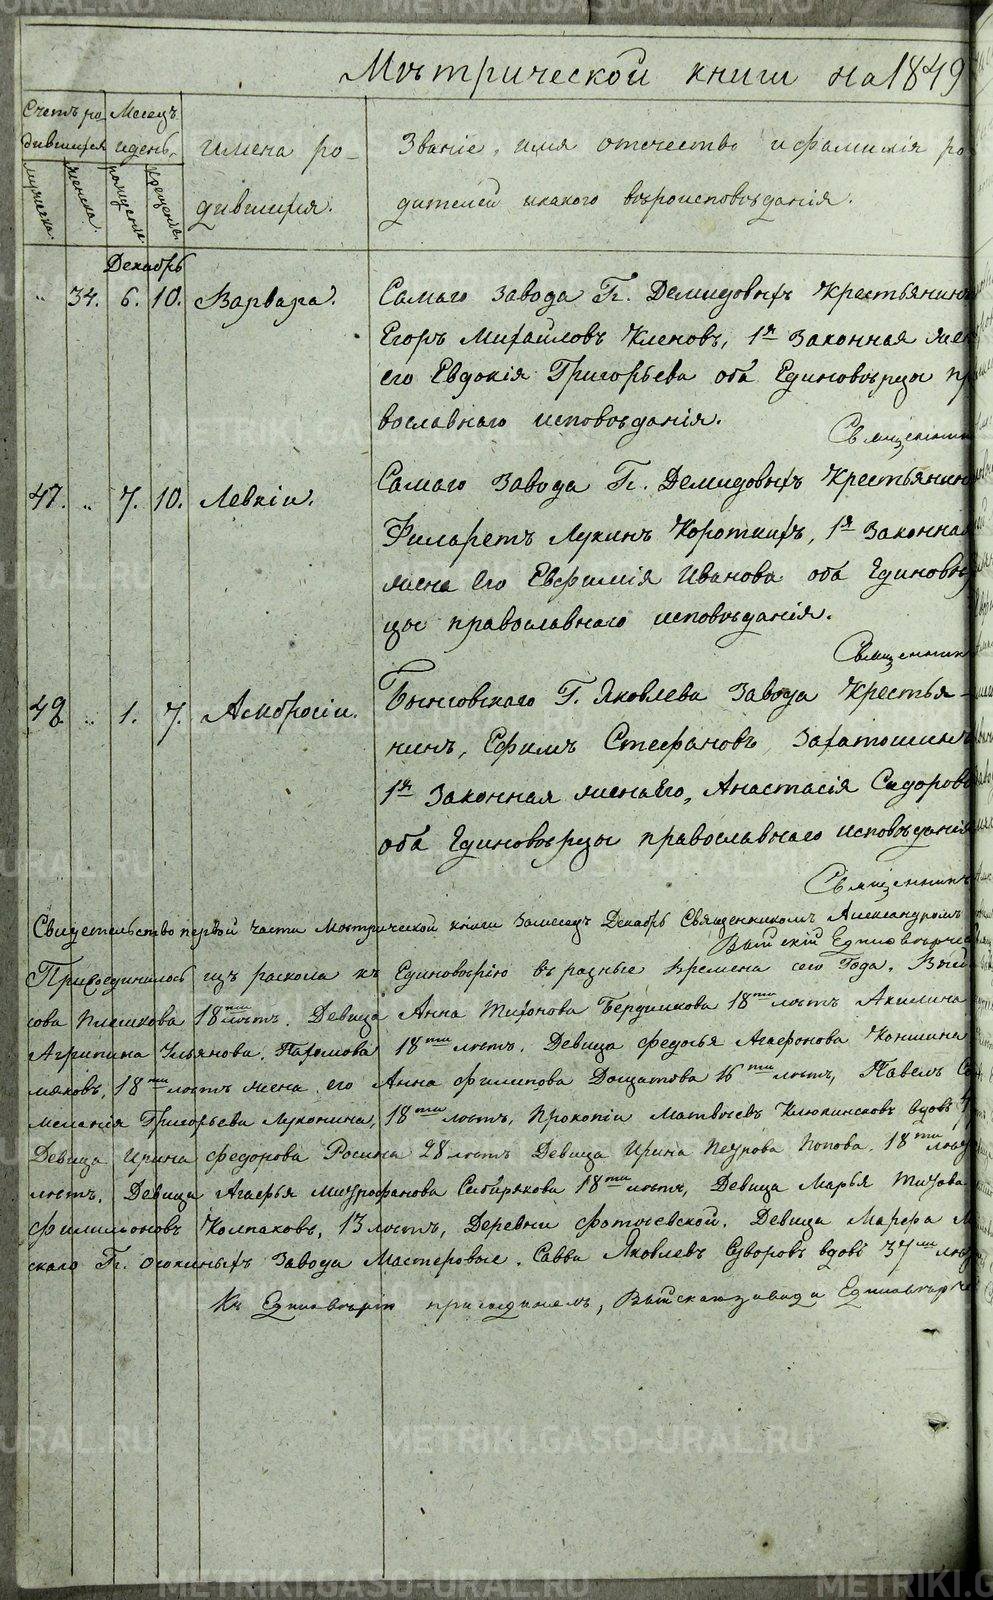 Метрической книги на 1849
Счетъ ро-
дившихся
Месецъ
и день.
мужеска.
женска.
рождения
крещения.
имена ро-
дившихся.
Званіе, имя отечество и фамилія ро
дителей и какого вѣроисповѣданія.
Декабрь
" 34. 6. 10. Варвара.
Самаго завода Гг. Демидовыхъ Крестьянинъ
Егоръ Михайловъ Кленовъ, 1я Законная жен
его Евдокія Григорьева оба Единовѣрцы пр
вославнаго исповѣданія.
Священник
47. " 7. 10. Левкіи.
Самаго Завода Гг. Демидовыхъ Крестьянин
Филаретъ Лукинъ Короткихъ, 1я Законная
жена Его Евфимія Иванова оба Единовѣр
цы православнаго исповѣданія.
Священник
48 " 1. 7. Амбросіи.
Быньговскаго Г. Яковлева Завода Крестья-
нинъ, Ефимъ Стефановъ,
1я Законная жена Его, Анастасія Сидорова
оба Единовѣрцы православнаго исповѣданія
Священникъ
Свидетельство первой части Метрической книги за месецъ Декабрь Священникомъ Александромъ
Выйскій Единовѣрчес
Присоединилось изъ раскола къ Единовѣрію въ разные Времена сего Года. Вый
сова Плешкова 18ти лѣтъ. Девица Анна Тихонова 18ти лѣтъ Акилина
Агрипина Ульянова, Пахомова 18ти лѣтъ. Девица Федосья Агафонова Коншина
мяковъ, 18ти лѣтъ жена его Анна Филипова 16ти лѣтъ, Павелъ Се
меланія Григорьева Луконина, 18ти лѣтъ, Прокопіи Матвѣевъ вдовъ 4
Девица Ирина Федорова Росина 28 лѣтъ Девица Ирина Петрова Попова. 18ти лѣт
лѣтъ. Девица Агафья Митрофанова Сибирякова 18ти лѣтъ, Девица Марья Титова
Филимоновъ Колпаковъ, 13 лѣтъ, Деревни Фотѣевской. Девица Марфа М
скаго Гг. Осокиныхъ Завода Мастеровые. Савва Яковлевъ Суворовъ вдовъ 37ми лѣт
Къ Единовѣрію присоединилъ, Выйскаго завода Единовѣрче
METRIKI.GASO-URAL.RU